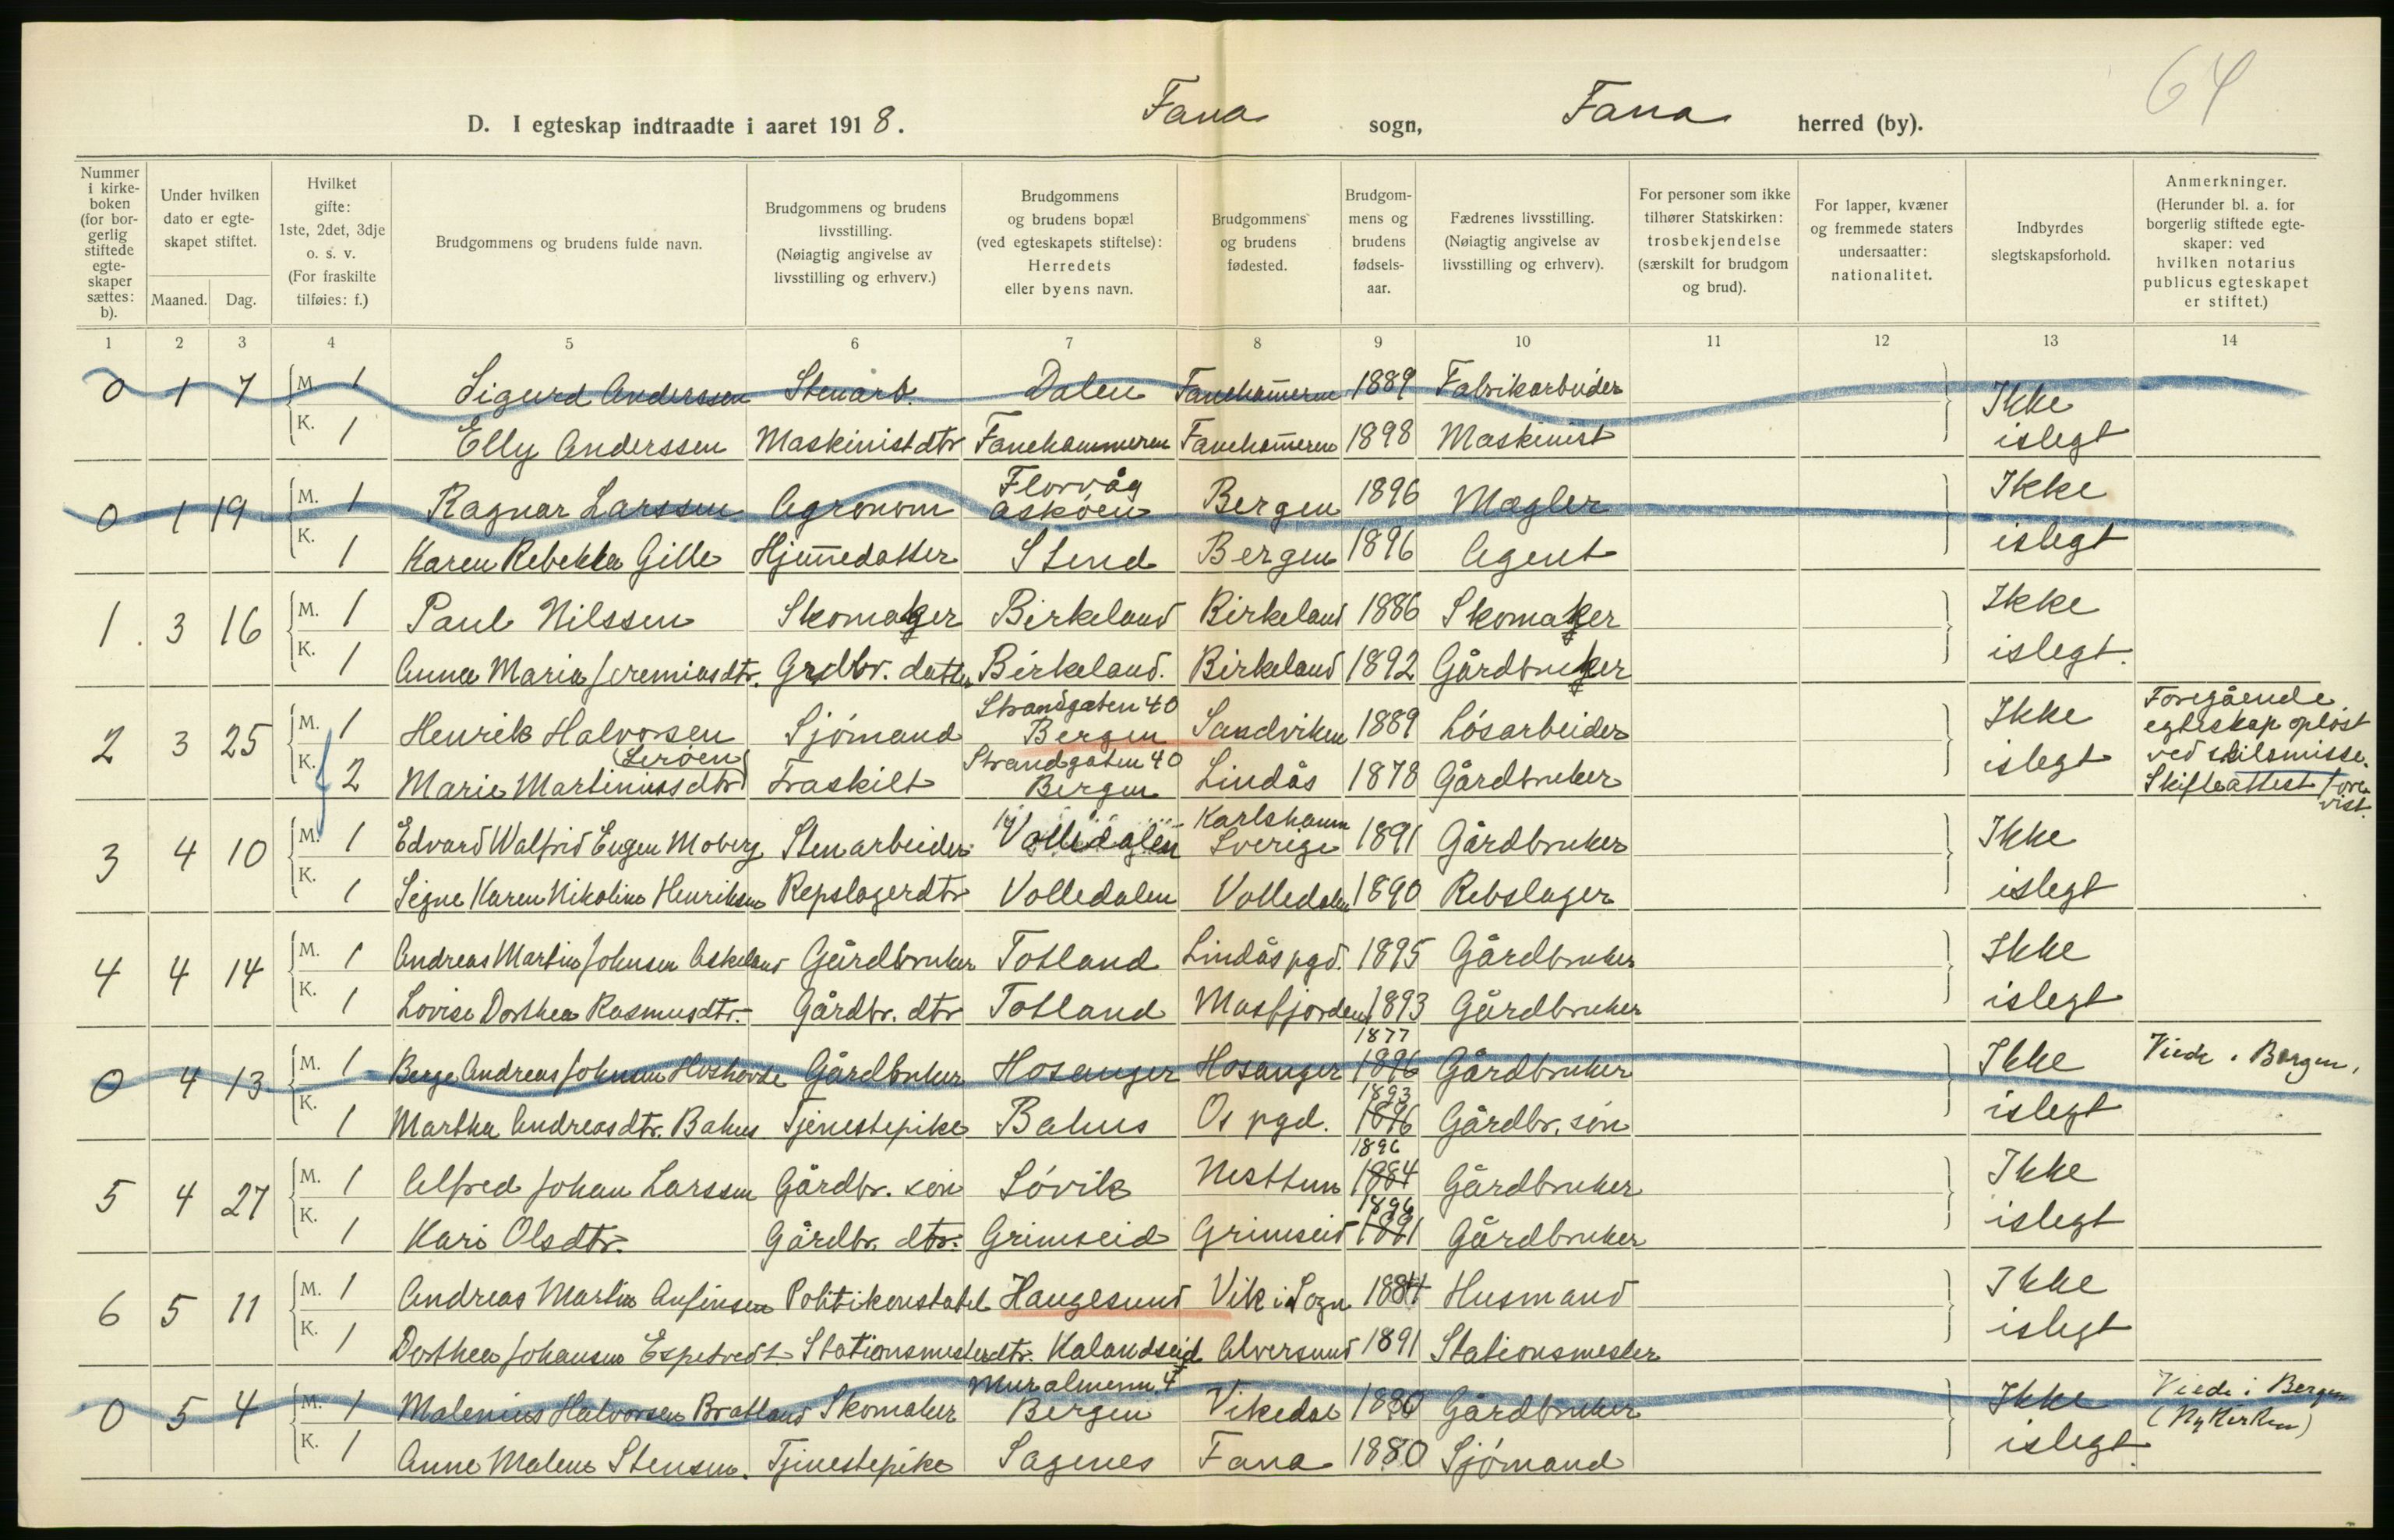 64
D. I egteskap indtraadte i aaret 1918. Fana sogn, Fana herred (by).
Nummer i kirkeboken (for borgerlig stiftede egteskaper sættes: b).
Under hvilken dato er egteskapet stiftet.
Maaned. Dag.
Hvilket gifte: 1ste, 2det, 3dje o. s. v. (For fraskilte tilføies: f.)
Brudgommens og brudens fulde navn.
Brudgommens og brudens livsstilling. (Nøiagtig angivelse av livsstilling og erhverv.)
Brudgommens og brudens bopæl (ved egteskapets stiftelse): Herredets eller byens navn.
Brudgommens og brudens fødested.
Brudgommens og brudens fødselsaar.
Fædrenes livsstilling. (Nøiagtig angivelse av livsstilling og erhverv).
For personer som ikke tilhører Statskirken: trosbekjendelse (særskilt for brudgom og brud).
For lapper, kvæner og fremmede staters undersaatter: nationalitet.
Indbyrdes slegtskapsforhold.
Anmerkninger. (Herunder bl. a. for borgerlig stiftede egteskaper: ved hvilken notarius publicus egteskapet er stiftet.)
1 2 3 4 5 6 7 8 9 10 11 12 13 14
0 1 7 M. 1 Sigurd Anderssen Stenarb. Dalen Fanehameren 1889 Fabrikarbeider Ikke
K. 1 Elly Anderssen Maskinistdtr Fanehammeren Fanehameren 1898 Maskinist islegt
0 1 19 M. 1 Ragnar Larssen Agronom Florvåg Askøen Bergen 1896 Mægler Ikke
K. 1 Karen Rebekka Gille Hjemedatter Stend Bergen 1896 Agent islegt
1. 3 16 M. 1 Paul Nilssen Skomaker Birkeland Birkeland 1886 Skomaker Ikke
K. 1 Anna Maria Jeremiasdtr. Grdbr. datter Birkeland. Birkeland 1892 Gårdbruker islegt.
2 3 25 M. 1 Henrik Halvorsen Sjømand Strandgaten 40 Bergen Sandviken 1889 Løsarbeider Ikke Foregående egteskap opløst
K. 2 Marie Martiniussdtr (Lerøen) Fraskilt Strandgaten 40 Bergen Lindås 1878 Gårdbruker islegt ved skilsmisse. Skifteattest forevist.
3 4 10 M. 1 Edvard Walfrid Eugen Moberg Stenarbeider Volledalen Karlshamn Sverige 1891 Gårdbruker Ikke
K. 1 Signe Karen Nikoline Henriksen Repslagerdtr Volledalen Volledalen 1890 Rebslager islegt
4 4 14 M. 1 Andreas Martin Johnsen Askeland Gårdbruker Totland Lindås pgd. 1895 Gårdbruker Ikke
K. 1 Lovise Dorthea Rasmusdtr. Gårdbr. dtr Totland Masfjorden 1893 Gårdbruker islegt
0 4 13 M. 1 Berge Andreas Johnan Hoshovde Gårdbruker Hosanger Hosanger 1877 1896 Gårdbruker Ikke Viede i Bergen,
K. 1 Martha Andreasdtr. Bahus Tjenestepike Bahus Os pgd. 1893 1896 Gårdbr. søn islegt
5 4 27 M. 1 Alfred Johan Larssen Gårdbr. søn Søvik Nesttun 1896 1884 Gårdbruker Ikke
K. 1 Kari Olsdtr. Gårdbr. dtr. Grimseid Grimseid 1896 1891 Gårdbruker islegt
6 5 11 M. 1 Andreas Martin Anfinsen Politikonstabel Haugesund Vik i Sogn 1884 Husmand Ikke
K. 1 Dorthea Johansen Espetvedt Stationsmesterdtr. Kalandseid Alversund 1891 Stationsmester islegt
0 5 4 M. 1 Malenius Halvorsen Bratland Skomaker Muralmenn. 4 Bergen Vikedal 1880 Gårdbruker Ikke Viede i Bergen
K. 1 Anne Malene Stensen. Tjenestepike Sagenes Fana 1880 Sjømand islegt. (Nykirken)